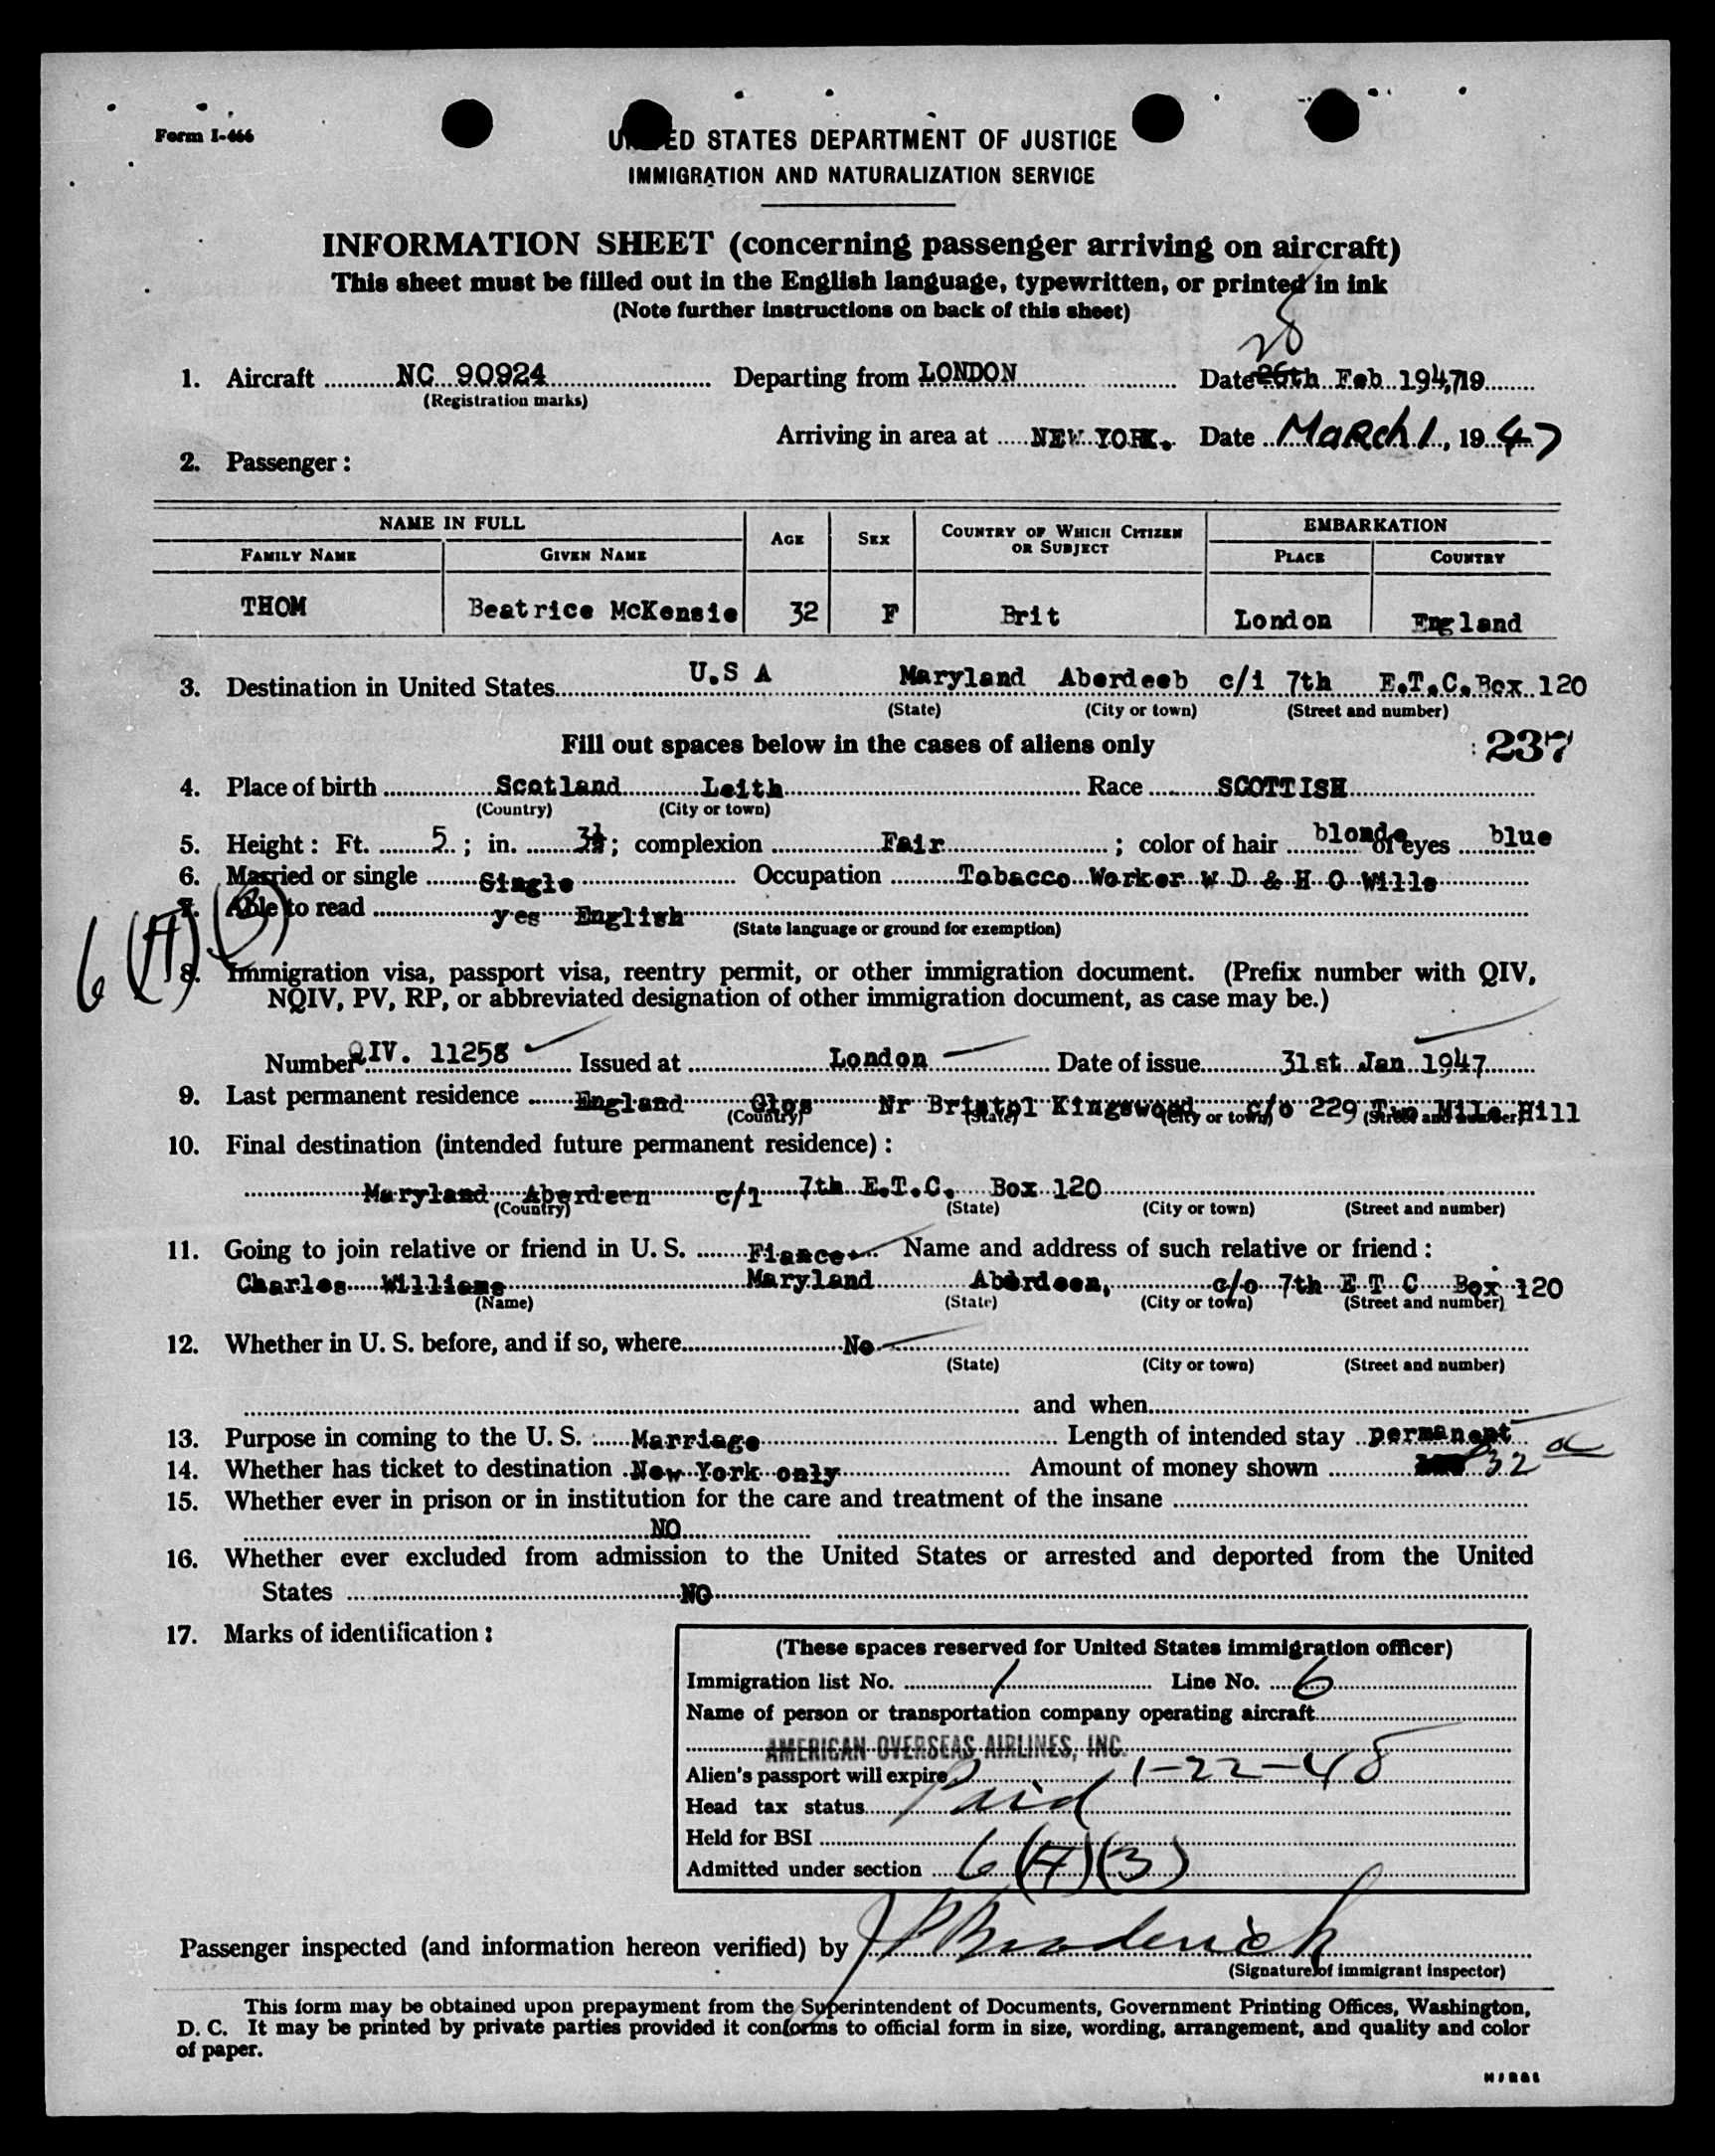 Form I-466
UNITED STATES DEPARTMENT OF JUSTICE
IMMIGRATION AND NATURALIZATION SERVICE
INFORMATION SHEET (concerning passenger arriving on aircraft)
This sheet must be filled out in the English language, typewritten, or printed in ink
(Note further instructions on back of this sheet)
28
1. Aircraft NC 90924 Departing from LONDON Date 26th Feb 1947, 19
(Registration marks)
Arriving in area at NEW YORK. Date March 1, 1947
2. Passenger:
NAME IN FULL AGE SEX COUNTRY OF WHICH CITIZEN OR SUBJECT EMBARKATION
FAMILY NAME GIVEN NAME PLACE COUNTRY
THOM Beatrice McKensie 32 F Brit London England
3. Destination in United States U.S A Maryland Aberdeeb c/i 7th E.T.C. Box 120
(State) (City or town) (Street and number)
Fill out spaces below in the cases of aliens only : 237
4. Place of birth Scotland Leith Race SCOTTISH
(Country) (City or town)
5. Height: Ft. 5 ; in. 3½ ; complexion Fair ; color of hair blonde of eyes blue
6. Married or single Single Occupation Tobacco Worker W D & H O Wills
7. Able to read yes English
(State language or ground for exemption)
6(A)(3)
8. Immigration visa, passport visa, reentry permit, or other immigration document. (Prefix number with QIV,
NQIV, PV, RP, or abbreviated designation of other immigration document, as case may be.)
Number QIV. 11258 Issued at London Date of issue 31st Jan 1947
9. Last permanent residence England Glos Nr Bristol Kingswood c/o 229 Two Mile Hill
(Country) (State) (City or town) (Street and number)
10. Final destination (intended future permanent residence):
Maryland Aberdeen c/1 7th E.T.C. Box 120
(Country) (State) (City or town) (Street and number)
11. Going to join relative or friend in U. S. Fiance Name and address of such relative or friend:
Charles Williams Maryland Aberdeen, c/o 7th E T C Box 120
(Name) (State) (City or town) (Street and number)
12. Whether in U. S. before, and if so, where No
(State) (City or town) (Street and number)
and when
13. Purpose in coming to the U. S. Marriage Length of intended stay permanent
14. Whether has ticket to destination New York only Amount of money shown 32
15. Whether ever in prison or in institution for the care and treatment of the insane
NO
16. Whether ever excluded from admission to the United States or arrested and deported from the United
States NO
17. Marks of identification:
(These spaces reserved for United States immigration officer)
Immigration list No. 1 Line No. 6
Name of person or transportation company operating aircraft
AMERICAN OVERSEAS AIRLINES, INC.
Alien's passport will expire 1-22-48
Head tax status Paid
Held for BSI
Admitted under section 6(A)(3)
Passenger inspected (and information hereon verified) by J P Broderick
(Signature of immigrant inspector)
This form may be obtained upon prepayment from the Superintendent of Documents, Government Printing Offices, Washington,
D. C. It may be printed by private parties provided it conforms to official form in size, wording, arrangement, and quality and color
of paper.